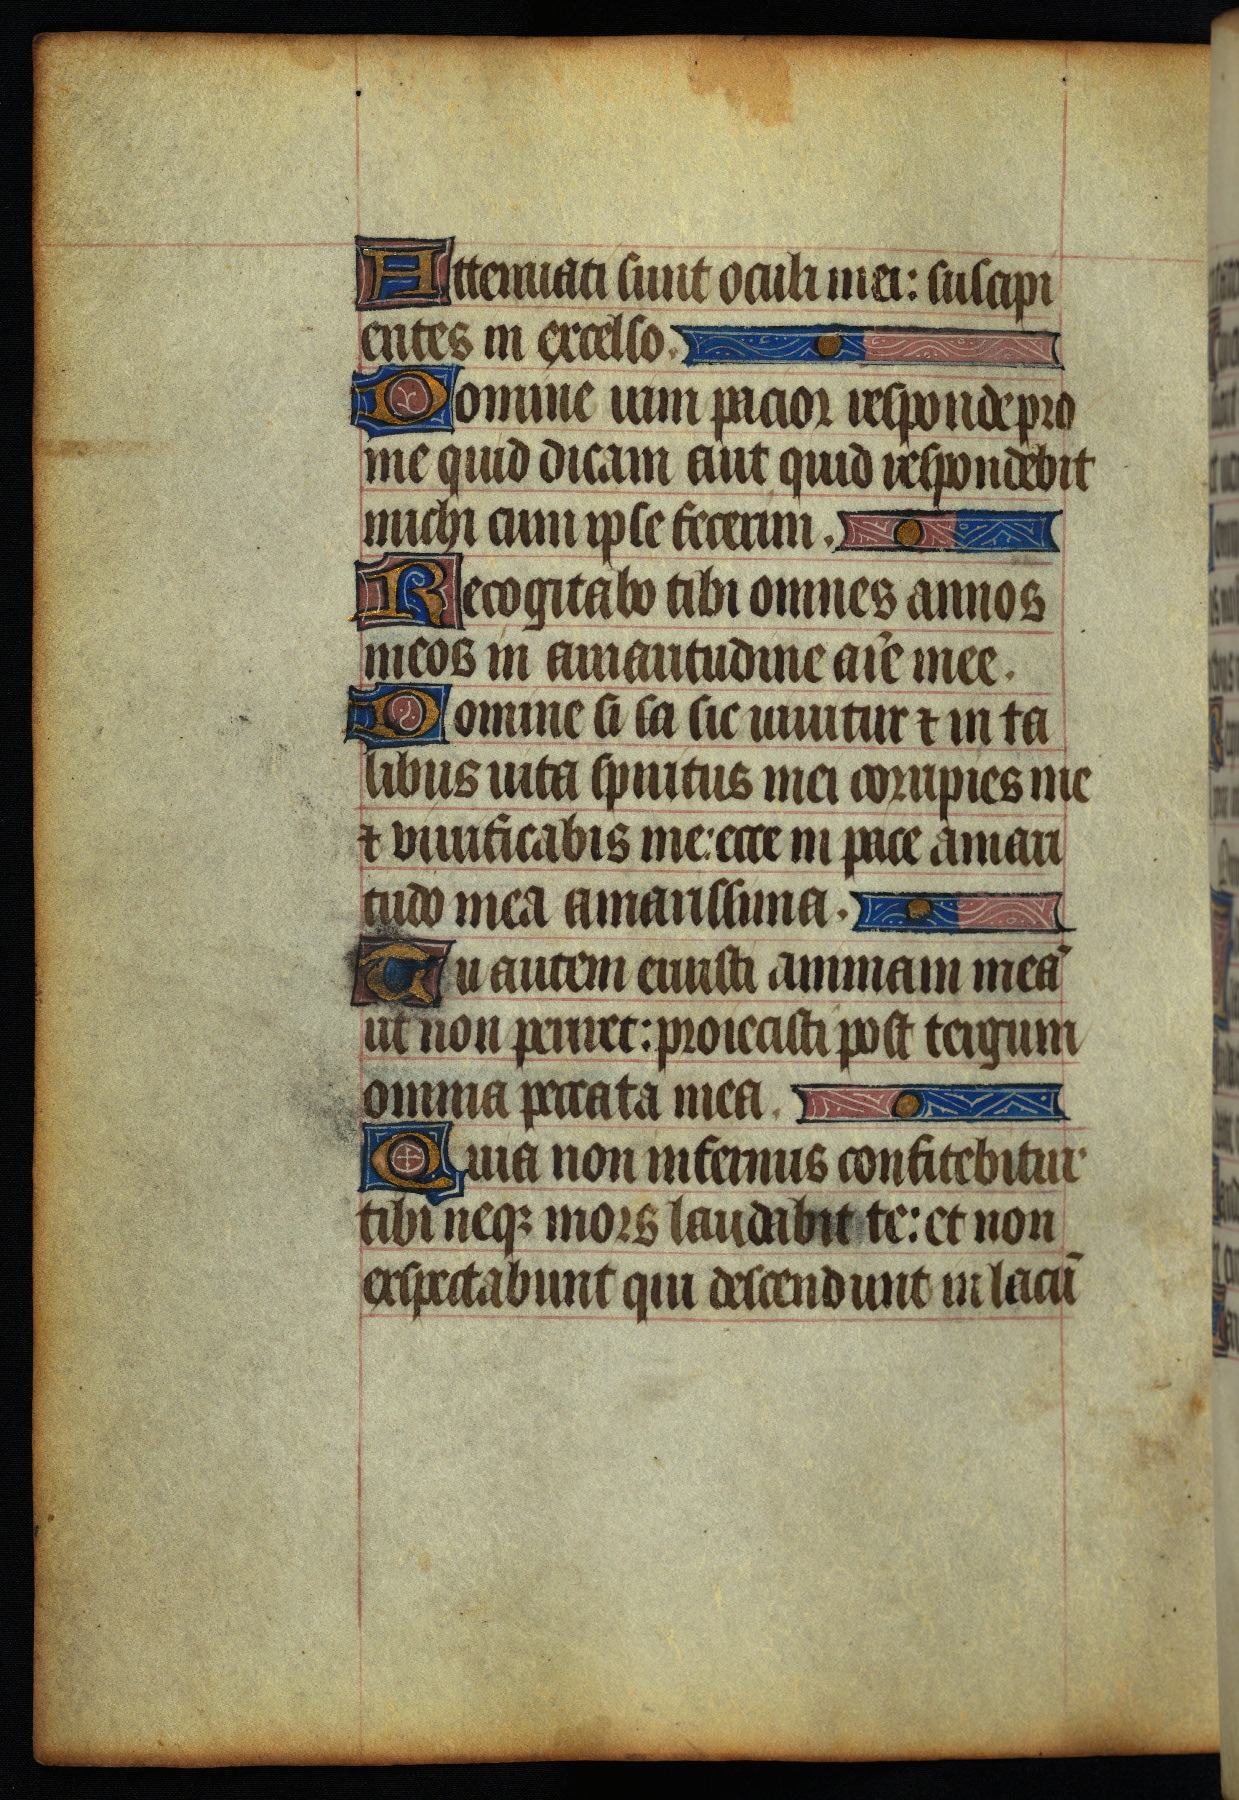 Attenuati sunt oculi mei: suscipi
entes in excelso.
Domine uim pacior responde pro
me quid dicam aut quid respondebit
michi cum ipse fecerim.
Recogitabo tibi omnes annos
meos in amaritudine aīe mee.
Domine si sa sic uiuitur ⁊ in ta
libus uita spiritus mei corripies me
⁊ viuificabis me: ecce in pace amari
tudo mea amarissima.
Tu autem eruisti animam meā
ut non periret: proiecisti post tergum
omnia peccata mea.
Quia non infernus confitebitur
tibi neqꝫ mors laudabit te: et non
exspectabunt qui descendunt in lacū